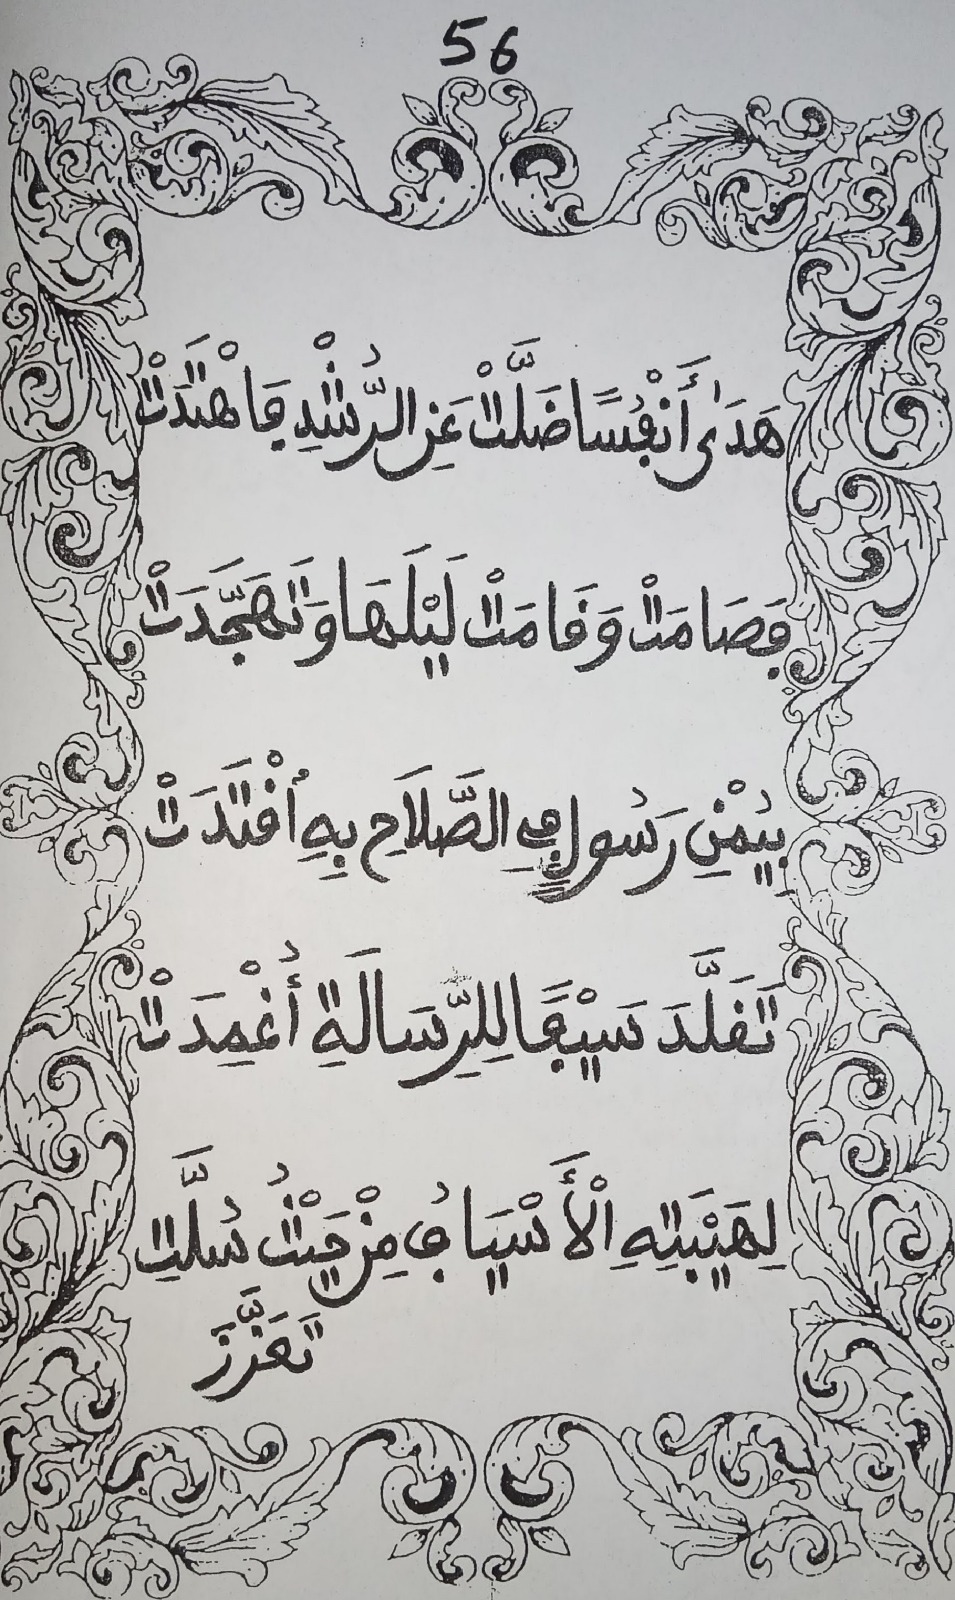 56
هَدَىٰ أَنْفُسًا ضَلَّتْ عَنِ الرُّشْدِ فَاهْتَدَتْ
فَصَامَتْ وَقَامَتْ لَيْلَهَا وَتَهَجَّدَتْ
بِيُمْنِ رَسُولٍ فِي الصَّلَاحِ بِهِ اُقْتَدَتْ
تَقَلَّدَ سَيْفًا لِلرِّسَالَةِ أُغْمِدَتْ
لِهَيْبَتِهِ الْأَسْيَافُ مِنْ حَيْثُ سُلَّتِ
تَعَزَّزَ